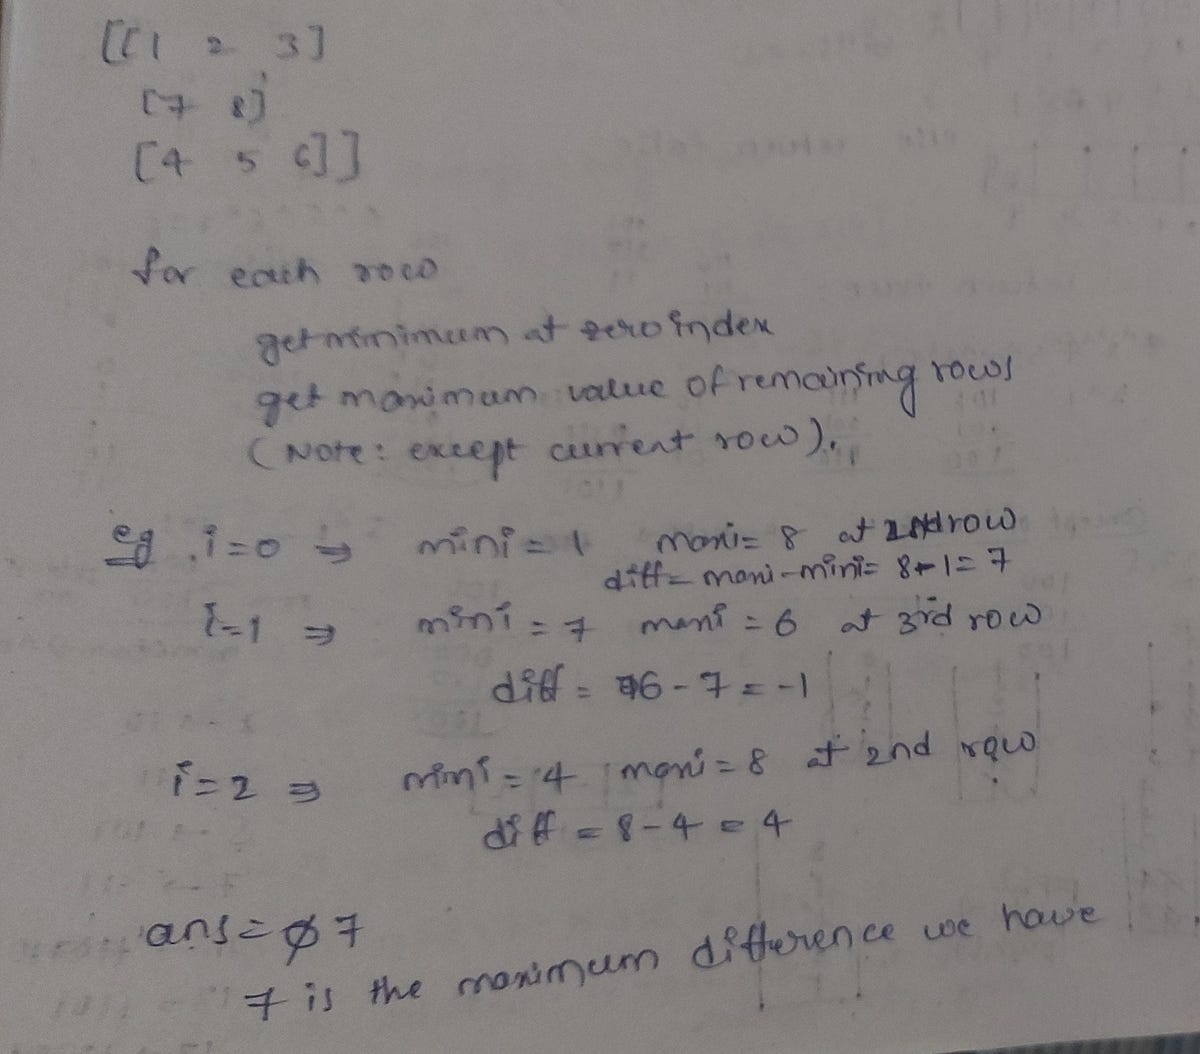 [[1 2 3]
[7 8]
[4 5 6]]
for each row
get minimum at zero index
get maximum value of remaining rows
(Note: except current row).
eg. i=0 ⇒ mini = 1 maxi= 8 at 2nd row
diff= maxi-mini= 8-1= 7
i=1 ⇒ mini = 7 maxi = 6 at 3rd row
diff = 6 - 7 = -1
i=2 ⇒ mini = 4 maxi = 8 at 2nd row
diff = 8 - 4 = 4
ans= 7
7 is the maximum difference we have